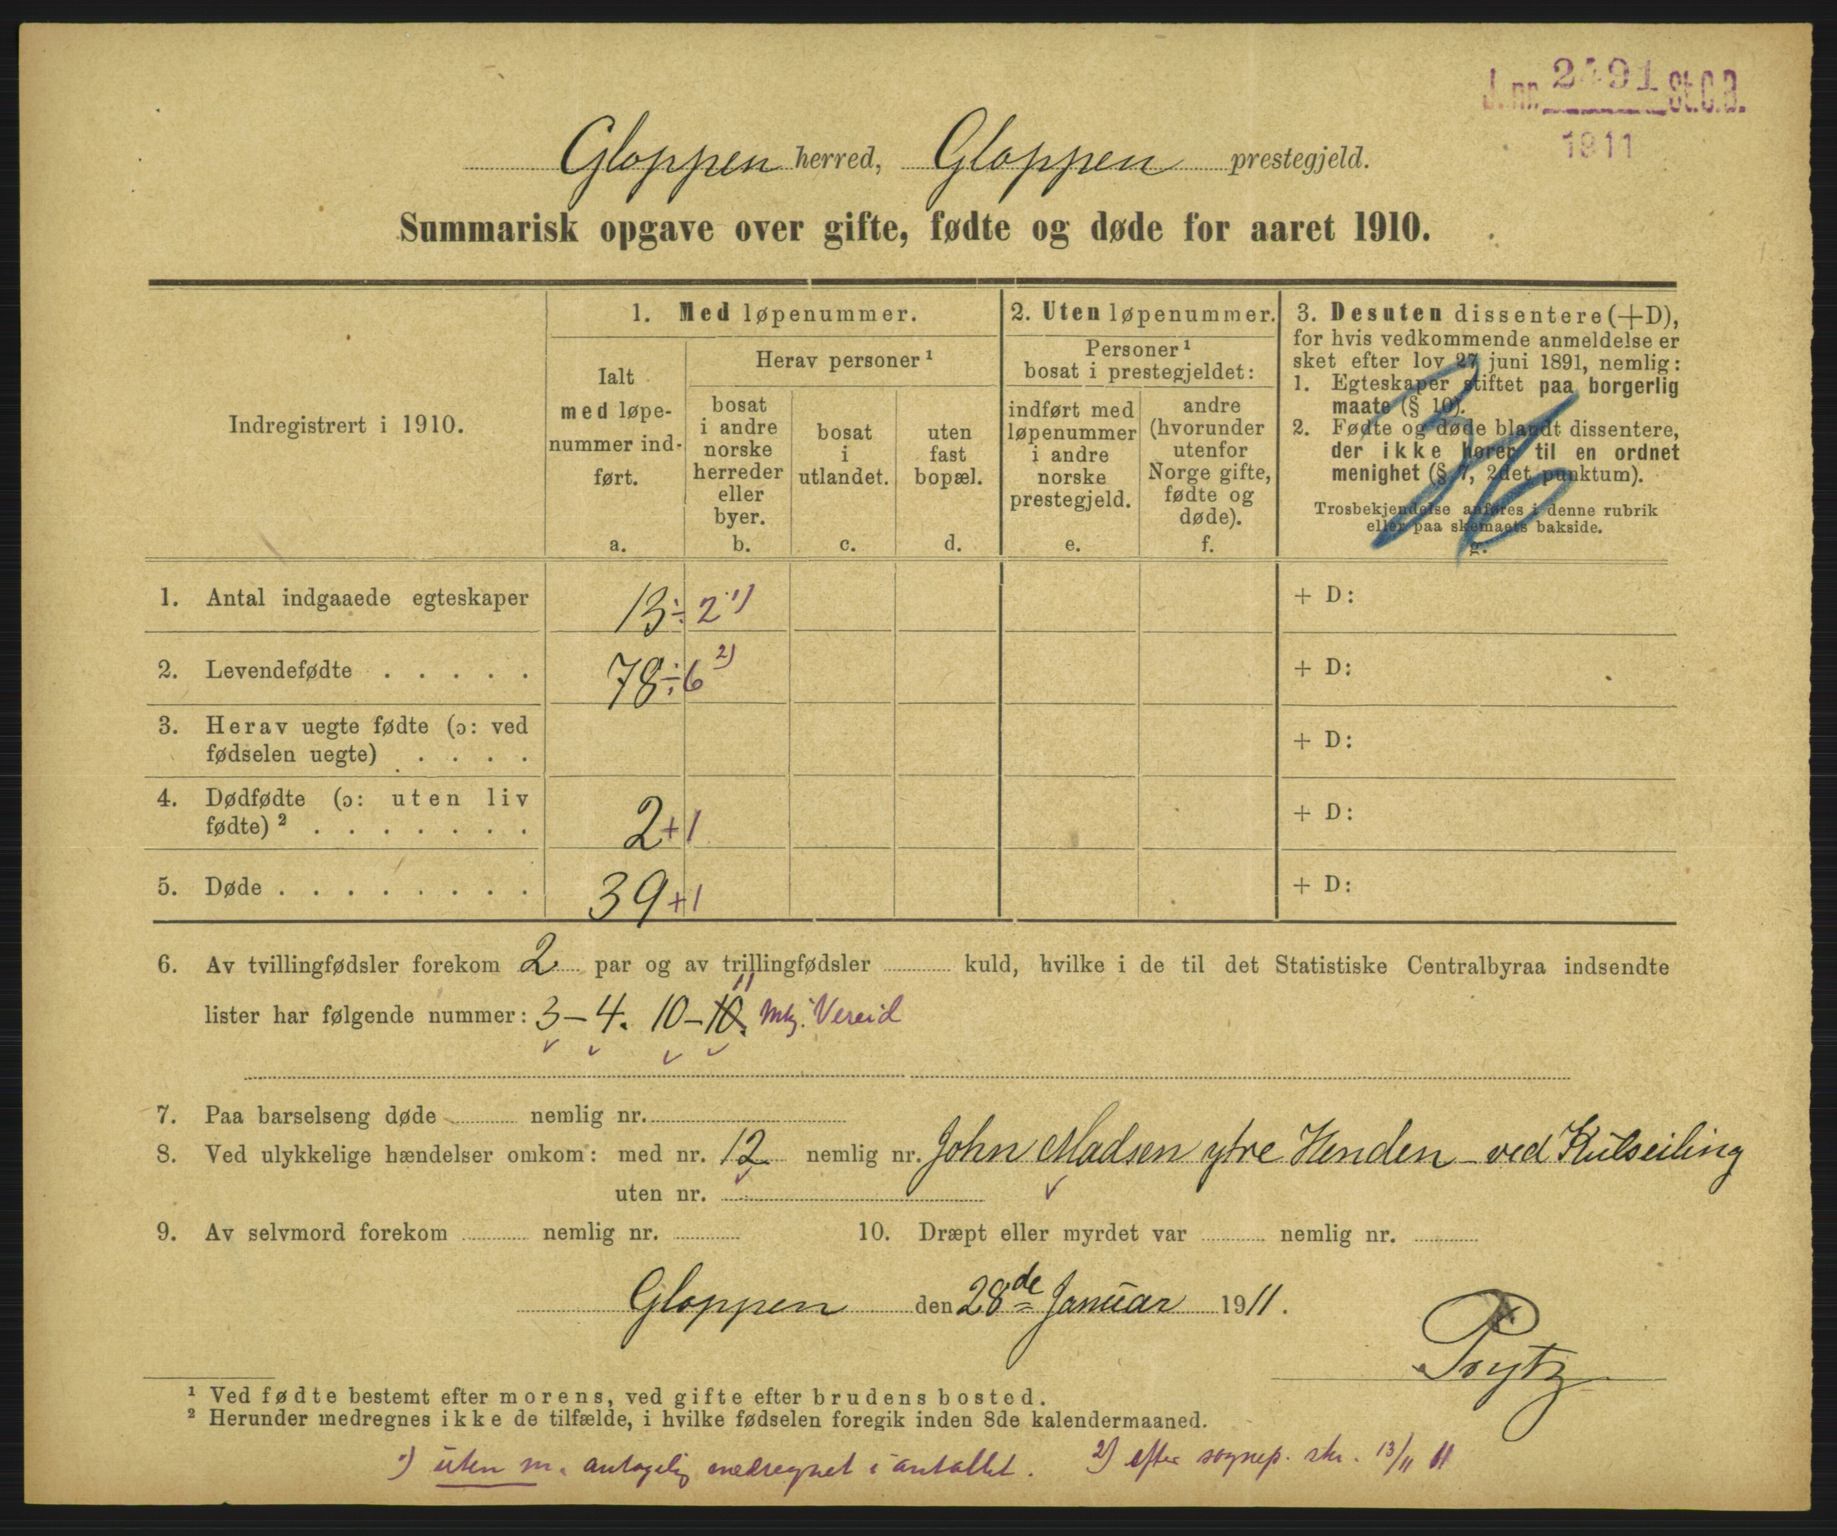 J.nr. 2491 St.C.B.
1911
Gloppen herred, Gloppen prestegjeld.
Summarisk opgave over gifte, fødte og døde for aaret 1910.
Indregistrert i 1910.
1. Med løpenummer.
Ialt med løpe-
nummer ind-
ført.
a.
Herav personer ¹
bosat
i andre
norske
herreder
eller
byer.
b.
bosat
i
utlandet.
c.
uten
fast
bopæl.
d.
2. Uten løpenummer.
Personer ¹
bosat i prestegjeldet:
indført med
løpenummer
i andre
norske
prestegjeld.
e.
andre
(hvorunder
utenfor
Norge gifte,
fødte og
døde).
f.
3. Desuten dissentere (+D),
for hvis vedkommende anmeldelse er
sket efter lov 27 juni 1891, nemlig:
1. Egteskaper stiftet paa borgerlig
maate (§ 10).
2. Fødte og døde blandt dissentere,
der ikke hører til en ordnet
menighet (§ 7, 2det punktum).
Trosbekjendelse anføres i denne rubrik
eller paa skemaets bakside.
g.
1. Antal indgaaede egteskaper 13 ÷ 2 ¹) + D:
2. Levendefødte . . . . . 78 ÷ 6 ²) + D:
3. Herav uegte fødte (ɔ: ved
fødselen uegte) . . . . + D:
4. Dødfødte (ɔ: uten liv
fødte) ² . . . . . . . 2 + 1 + D:
5. Døde . . . . . . . . 39 + 1 + D:
6. Av tvillingfødsler forekom 2 par og av trillingfødsler kuld, hvilke i de til det Statistiske Centralbyraa indsendte
lister har følgende nummer: 3 – 4. 10 – 10. 11 Mkj. Vereid
7. Paa barselseng døde nemlig nr.
8. Ved ulykkelige hændelser omkom: med nr. 12 nemlig nr. John Madsen ytre Henden – ved Kulseiling
uten nr.
9. Av selvmord forekom nemlig nr. 10. Dræpt eller myrdet var nemlig nr.
Gloppen den 28de Januar 1911.
Prytz
¹ Ved fødte bestemt efter morens, ved gifte efter brudens bosted.
² Herunder medregnes ikke de tilfælde, i hvilke fødselen foregik inden 8de kalendermaaned.
¹) uten nr. antagelig medregnet i antallet. ²) efter sognep. skr. 13/11 11